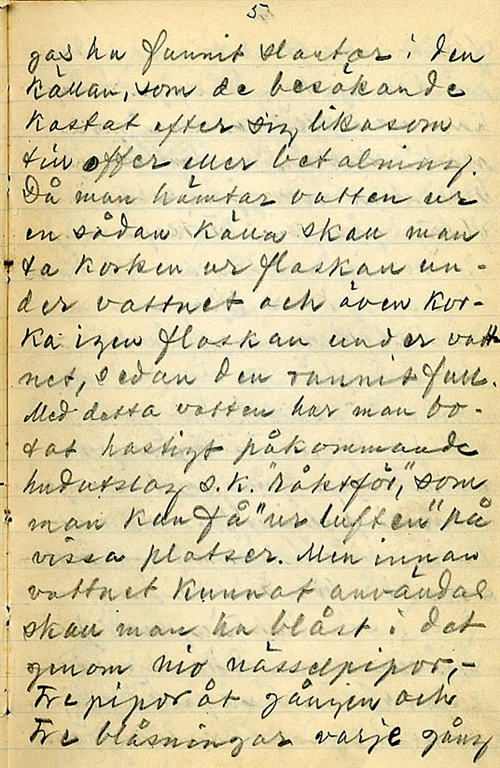 5
gas ha funnit slantar i den
källan, som de besökande
kastat efter sig likasom
till offer eller betalning.
Då man hämtar vatten ur
en sådan källa skall man
ta korken ur flaskan un-
der vattnet och även kor-
ka igen flaskan under vatt-
net, sedan den runnit full.
Med detta vatten har man bo-
tat hastigt påkommande
hudutslag s.k. som
man kan få "ur luften" på
vissa platser. Men innan
vattnet kunnat användas
skall man ha blåst i det
genom nio nässelpipor,-
Tre pipor åt gången och
Tre blåsningar varje gång